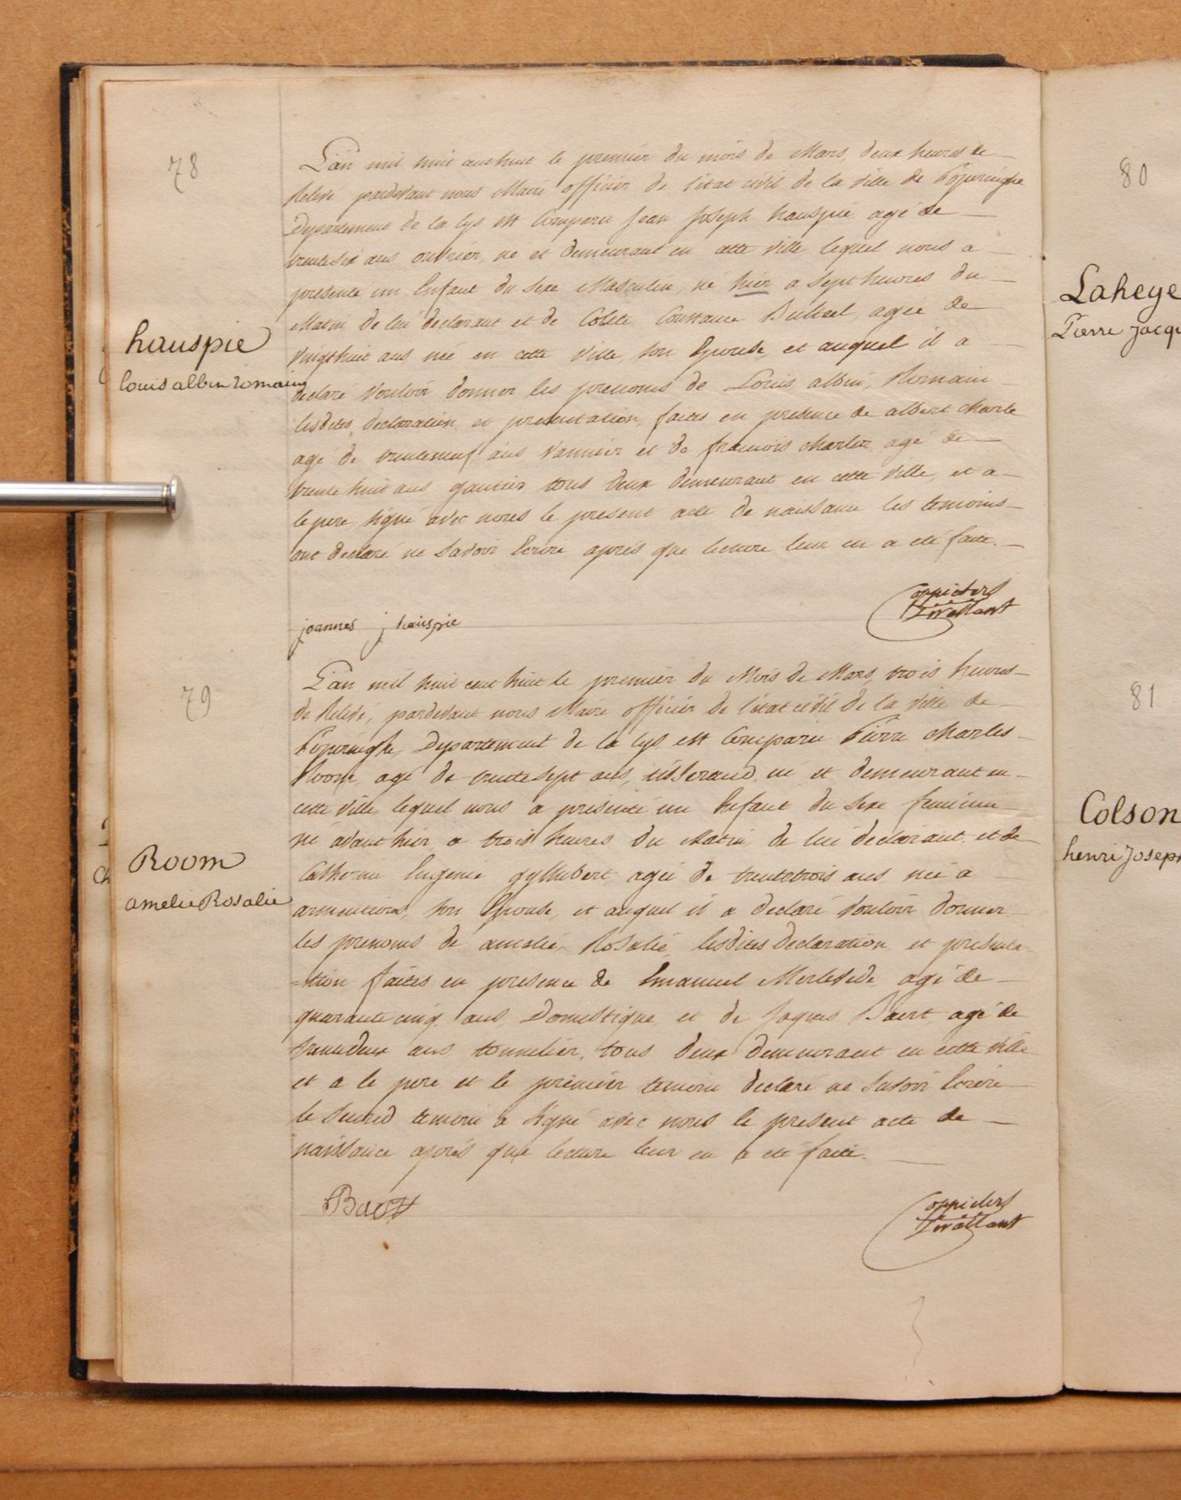 78
hauspie
louis albin romain
L'an mil huit cent huit le premier du mois de Mars, deux heures de
Relevé pardevant nous Maire officier de l'état civil de la Ville de Poperinghe
Departement de la Lys est Comparu Jean Joseph hauspie agé de
trente six ans ouvrier né et demeurant en cette Ville lequel nous a
presenté un Enfant du Sexe Masculin, né hier a Sept heures du
Matin de lui declarant et de Colete Constance agée de
Vingthuit ans née en cette Ville, Son Epouse, et auquel il a
declaré vouloir donner les prenoms de Louis albin, Romain
lesdites declaration et presentation, faites en presence de albert
agé de trenteneuf ans Vannier et de francois agé de
trente huit ans tous deux demeurant en cette Ville, et a
le pere, Signé avec nous le present acte de naissance les temoins
ont declaré ne Savoir Ecrire aprés que lecture leur en a été faite.
joannes j hauspie
79
Room
amelie Rosalie
L'an mil huit cent huit le premier du Mois de Mars, trois heures
de Relevé, pardevant nous Maire officier de l'état civil de la Ville de
Poperinghe Departement de la Lys est Comparu Pierre Charles
Room, agé de trente sept ans, tisserand, né et demeurant en
cette Ville lequel nous a presenté un Enfant du Sexe feminin
né avant hier a trois heures du Matin de lui declarant et de
Catherine Eugenie agée de trentetrois ans née a
armentieres, Son Epouse, et auquel il a declaré vouloir donner
les prenoms de amelie Rosalie lesdites declaration et presenta
=tion faites en presence de Emanuel Merlevede agé de
quarante cinq ans Domestique et de Jaques Baert agé de
trentedeux ans tonnelier, tous deux demeurant en cette Ville
et a le pere et le premier temoin declaré ne Savoir Ecrire
le Second temoin a Signé avec nous le present acte de
naissance aprés que lecture leur en a été faite.
Baert
80
Laheye
Pierre Jacqu
81
Colson
henri Joseph